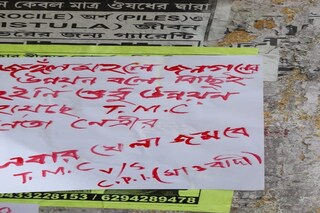 কেবল মাত্র ঔষধের দ্বারা
ROCILE) অর্শ (PILES) ও
TULA) জীবন
জন্য গ্যারান্টি
জঙ্গলমহলে জনগণের
উন্নয়ন বলে কিছুই
হইনি শুধু উন্নয়ন
হয়েছে T.M.C
নেতা নেত্রীর
এবার খেলা জমবে
T.M.C V/S C.P.I.(মাওবাদী)
9433228153 / 6294289478